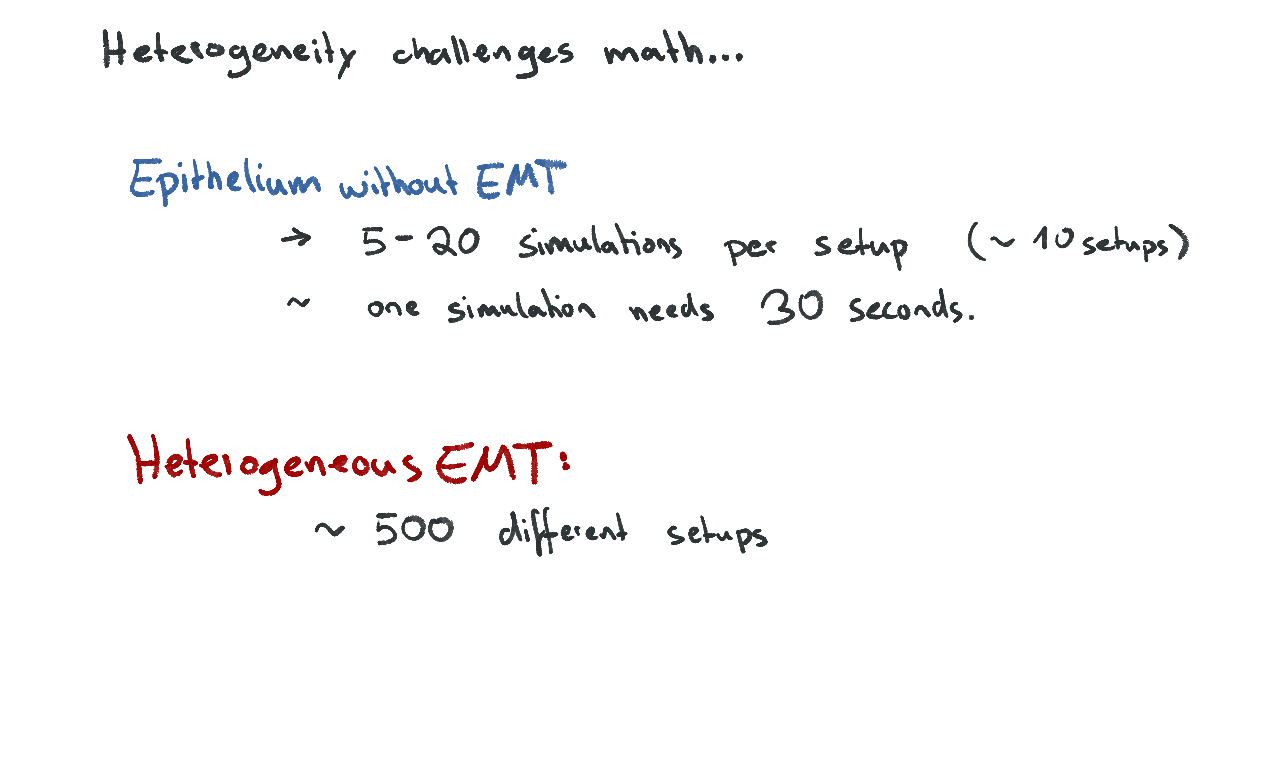 Heterogeneity challenges math...
Epithelium without EMT
→ 5-20 simulations per setup (~10 setups)
~ one simulation needs 30 seconds.
Heterogeneous EMT:
~ 500 different setups